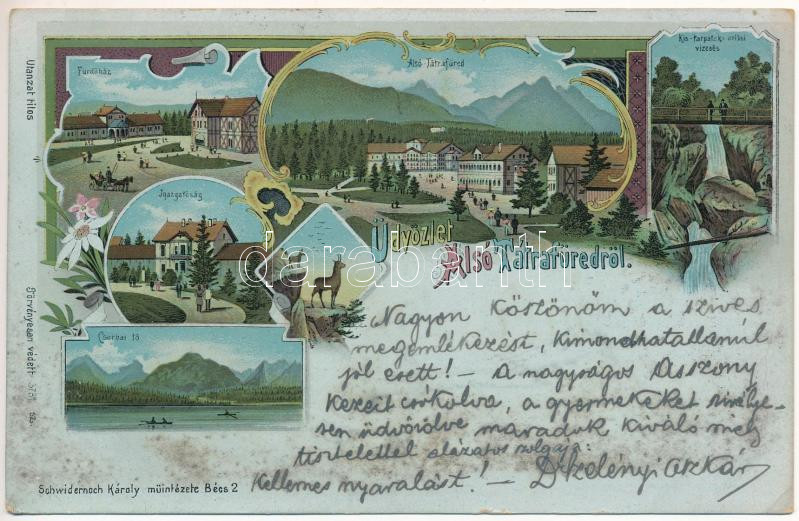 Fürdőház
Alsó Tátrafüred
Kis-tarpataki óriási
vizesés
Igazgatóság
Csorbai tó
Üdvözlet
Alsó Tátrafüredröl.
darabanth
Utánzat tilos
Törvényesen védett
Nagyon köszönöm a szives
megemlékezést, kimondhatatlanúl
jól esett! – A nagyságos Asszony
kezeit csókolva, a gyermekeket szivélye-
sen üdvözölve maradok kiváló mély
tisztelettel alázatos szolgája:
Kellemes nyaralást! – Dr
Schwidernoch Károly müintézete Bécs 2